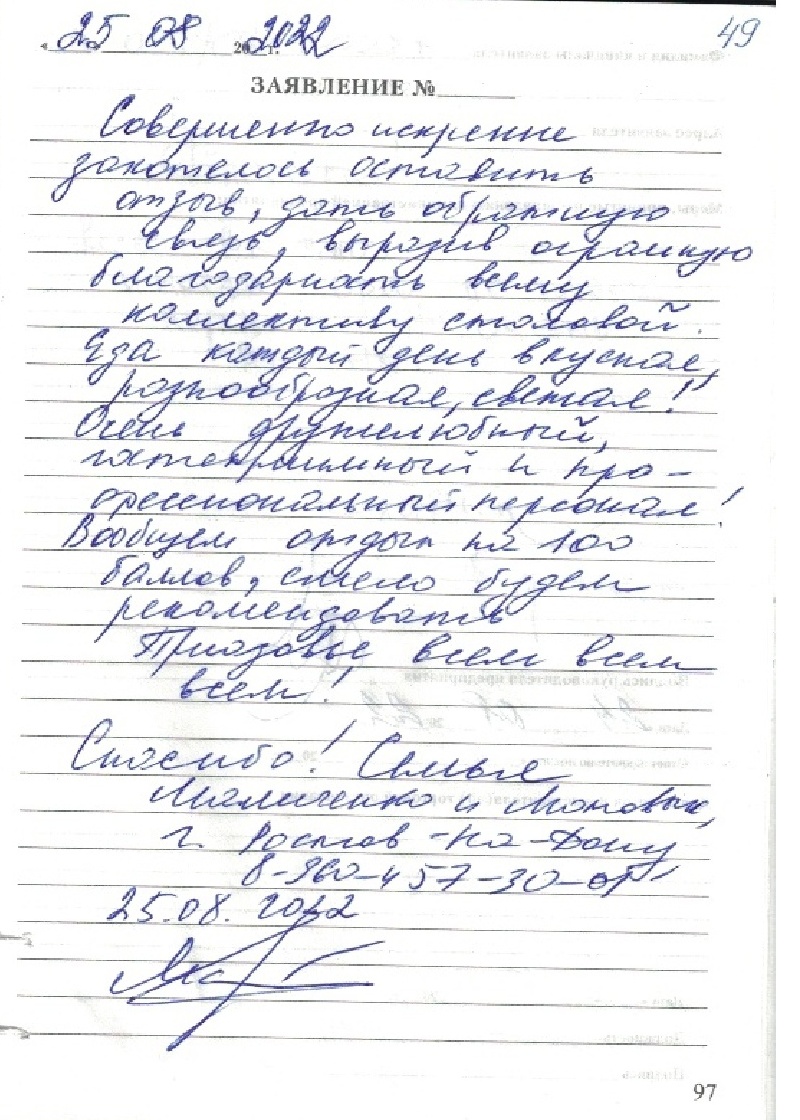 « 25 08 2022 г.
49
ЗАЯВЛЕНИЕ №
Совершенно искренне
захотелось оставить
отзыв, дать обратную
связь, выразив огромную
благодарность всему
коллективу столовой.
Еда каждый день вкусная,
разнообразная, свежая!
Очень дружелюбный,
гостеприимный и про-
фессиональный персонал!
Вообщем отдых на 100
баллов, смело будем
рекомендовать
Приазовье всем всем
всем!
Спасибо! Семья
г. Ростов-на-Дону
25.08.2022
97